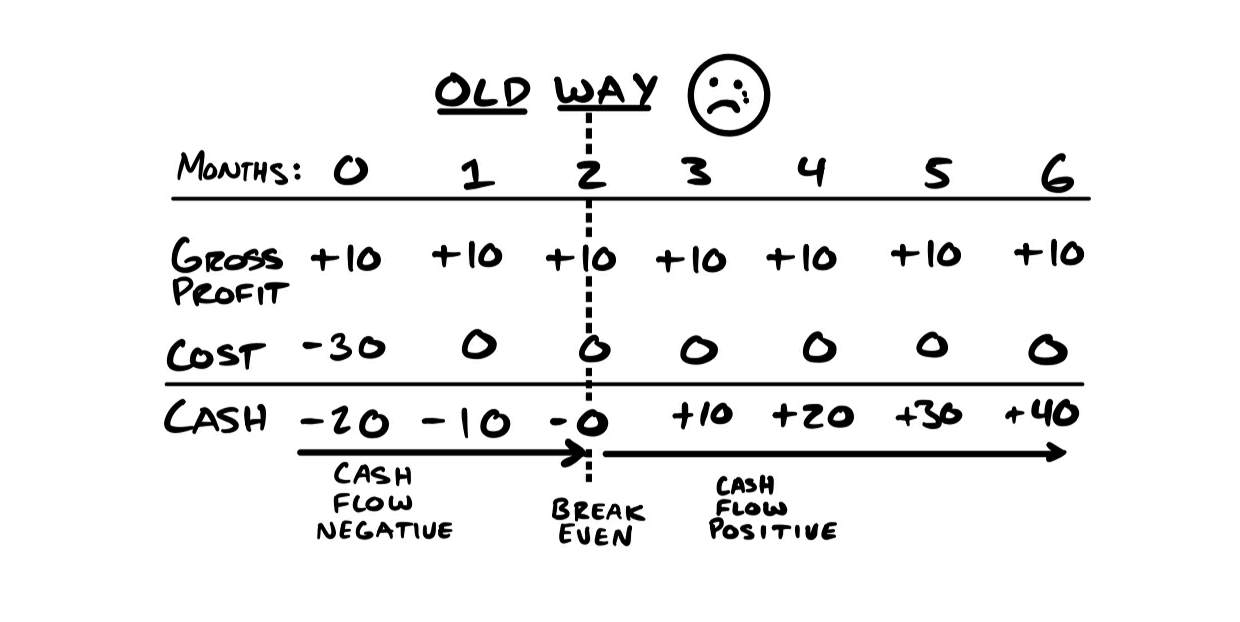 OLD WAY
MONTHS: 0 1 2 3 4 5 6
GROSS PROFIT +10 +10 +10 +10 +10 +10 +10
COST -30 0 0 0 0 0 0
CASH -20 -10 -0 +10 +20 +30 +40
CASH
FLOW
NEGATIVE
BREAK
EVEN
CASH
FLOW
POSITIVE